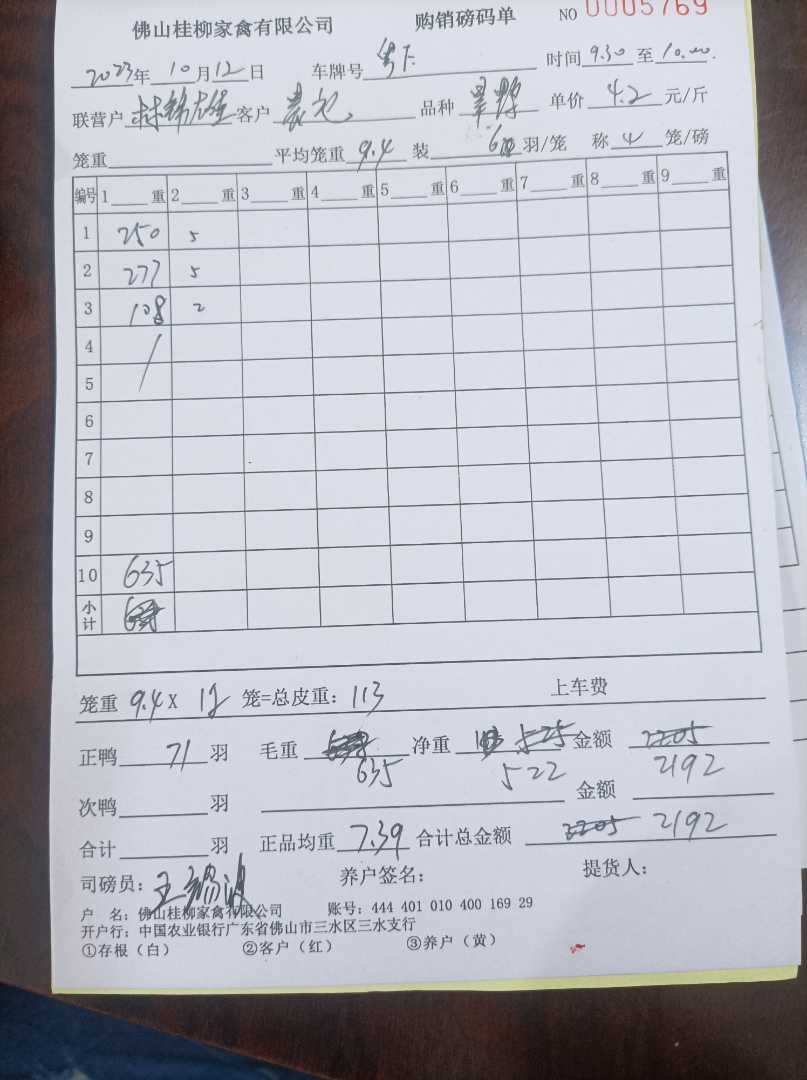 佛山桂柳家禽有限公司 购销磅码单 NO 0005769
2023年10月12日 车牌号 粤F. 时间 9.30 至 10.00.
联营户 林锦雄 客户 品种 单价 4.2 元/斤
笼重 平均笼重 9.4 装 6 羽/笼 称 4 笼/磅
编号 1 重 2 重 3 重 4 重 5 重 6 重 7 重 8 重 9 重
1 250 5
2 277 5
3 108 2
4
5
6
7
8
9
10 635
小计
笼重 9.4 X 12 笼=总皮重: 113 上车费
正鸭 71 羽 毛重 净重 525 金额 2205
635 522 2192
次鸭 羽 金额
合计 羽 正品均重 7.39 合计总金额 2205 2192
司磅员: 王 波 养户签名: 提货人:
户 名: 佛山桂柳家禽有限公司 账号: 444 401 010 400 169 29
开户行: 中国农业银行广东省佛山市三水区三水支行
①存根(白) ②客户(红) ③养户(黄)